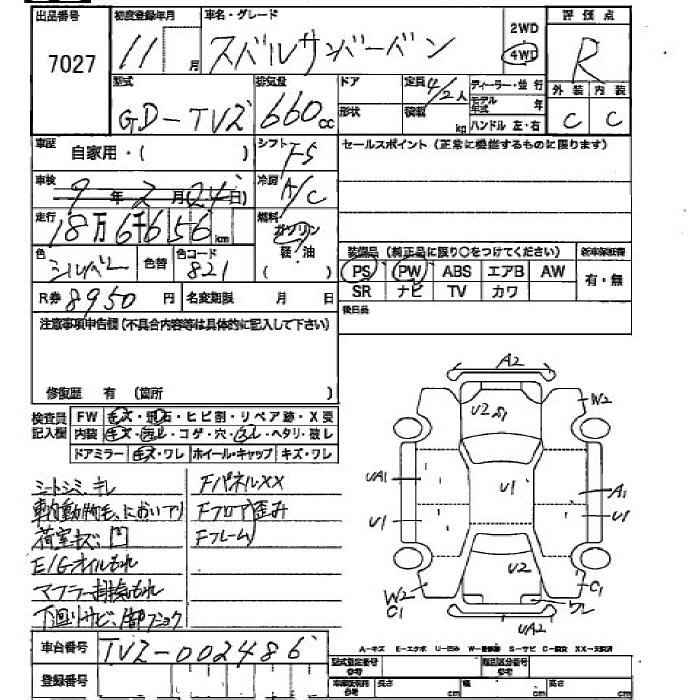 出品番号 初度登録年月 車名・グレード 2WD 評価点
7027 11 月 スバルサンバーバン 4WD R
型式 排気量 ドア 定員 4/2人 ディーラー・並行 外装 内装
GD-TV2 660cc 形状 積載 kg モデル年式 年 ハンドル 左・右 C C
車歴 自家用・( ) シフト F5 セールスポイント(正常に機能するものに限ります)
車検 9年2月24日) 冷房 A/C
走行 18万6千656km 燃料 ガソリン
色 シルバー 色替 色コード 821 軽・油 ( ) 装備品(純正品に限り○をつけてください) 新車保証書
PS PW ABS エアB AW 有・無
R券 8950円 名変期限 月 日 SR ナビ TV カワ
注意事項申告欄(不具合内容等は具体的に記入して下さい) 後日品
修復歴 有 (箇所 )
検査員記入欄 FW キズ・飛石・ヒビ割・リペア跡・X要
内装 キズ・汚レ・コゲ・穴・ヘタリ・破レ
ドアミラー キズ・ワレ ホイール・キャップ キズ・ワレ
シートシミ、キレ Fパネルxx
車内動物毛、においアリ Fフロア歪み
荷室キズ凹 Fフレーム
E/Gオイルもれ
マフラー排気もれ
下廻りサビ、
A2
U2 W2
UA1 U1 A1
U1 U1
U2
W2 C1 C1
ワレ
UA2
A-キズ E-エクボ U-凹み W-補修跡 S-サビ C-腐食 XX-交換済
車台番号 TV2-002486
登録番号 型式指定番号 参考 類別区分番号 参考
長さ cm 幅 cm 高さ cm